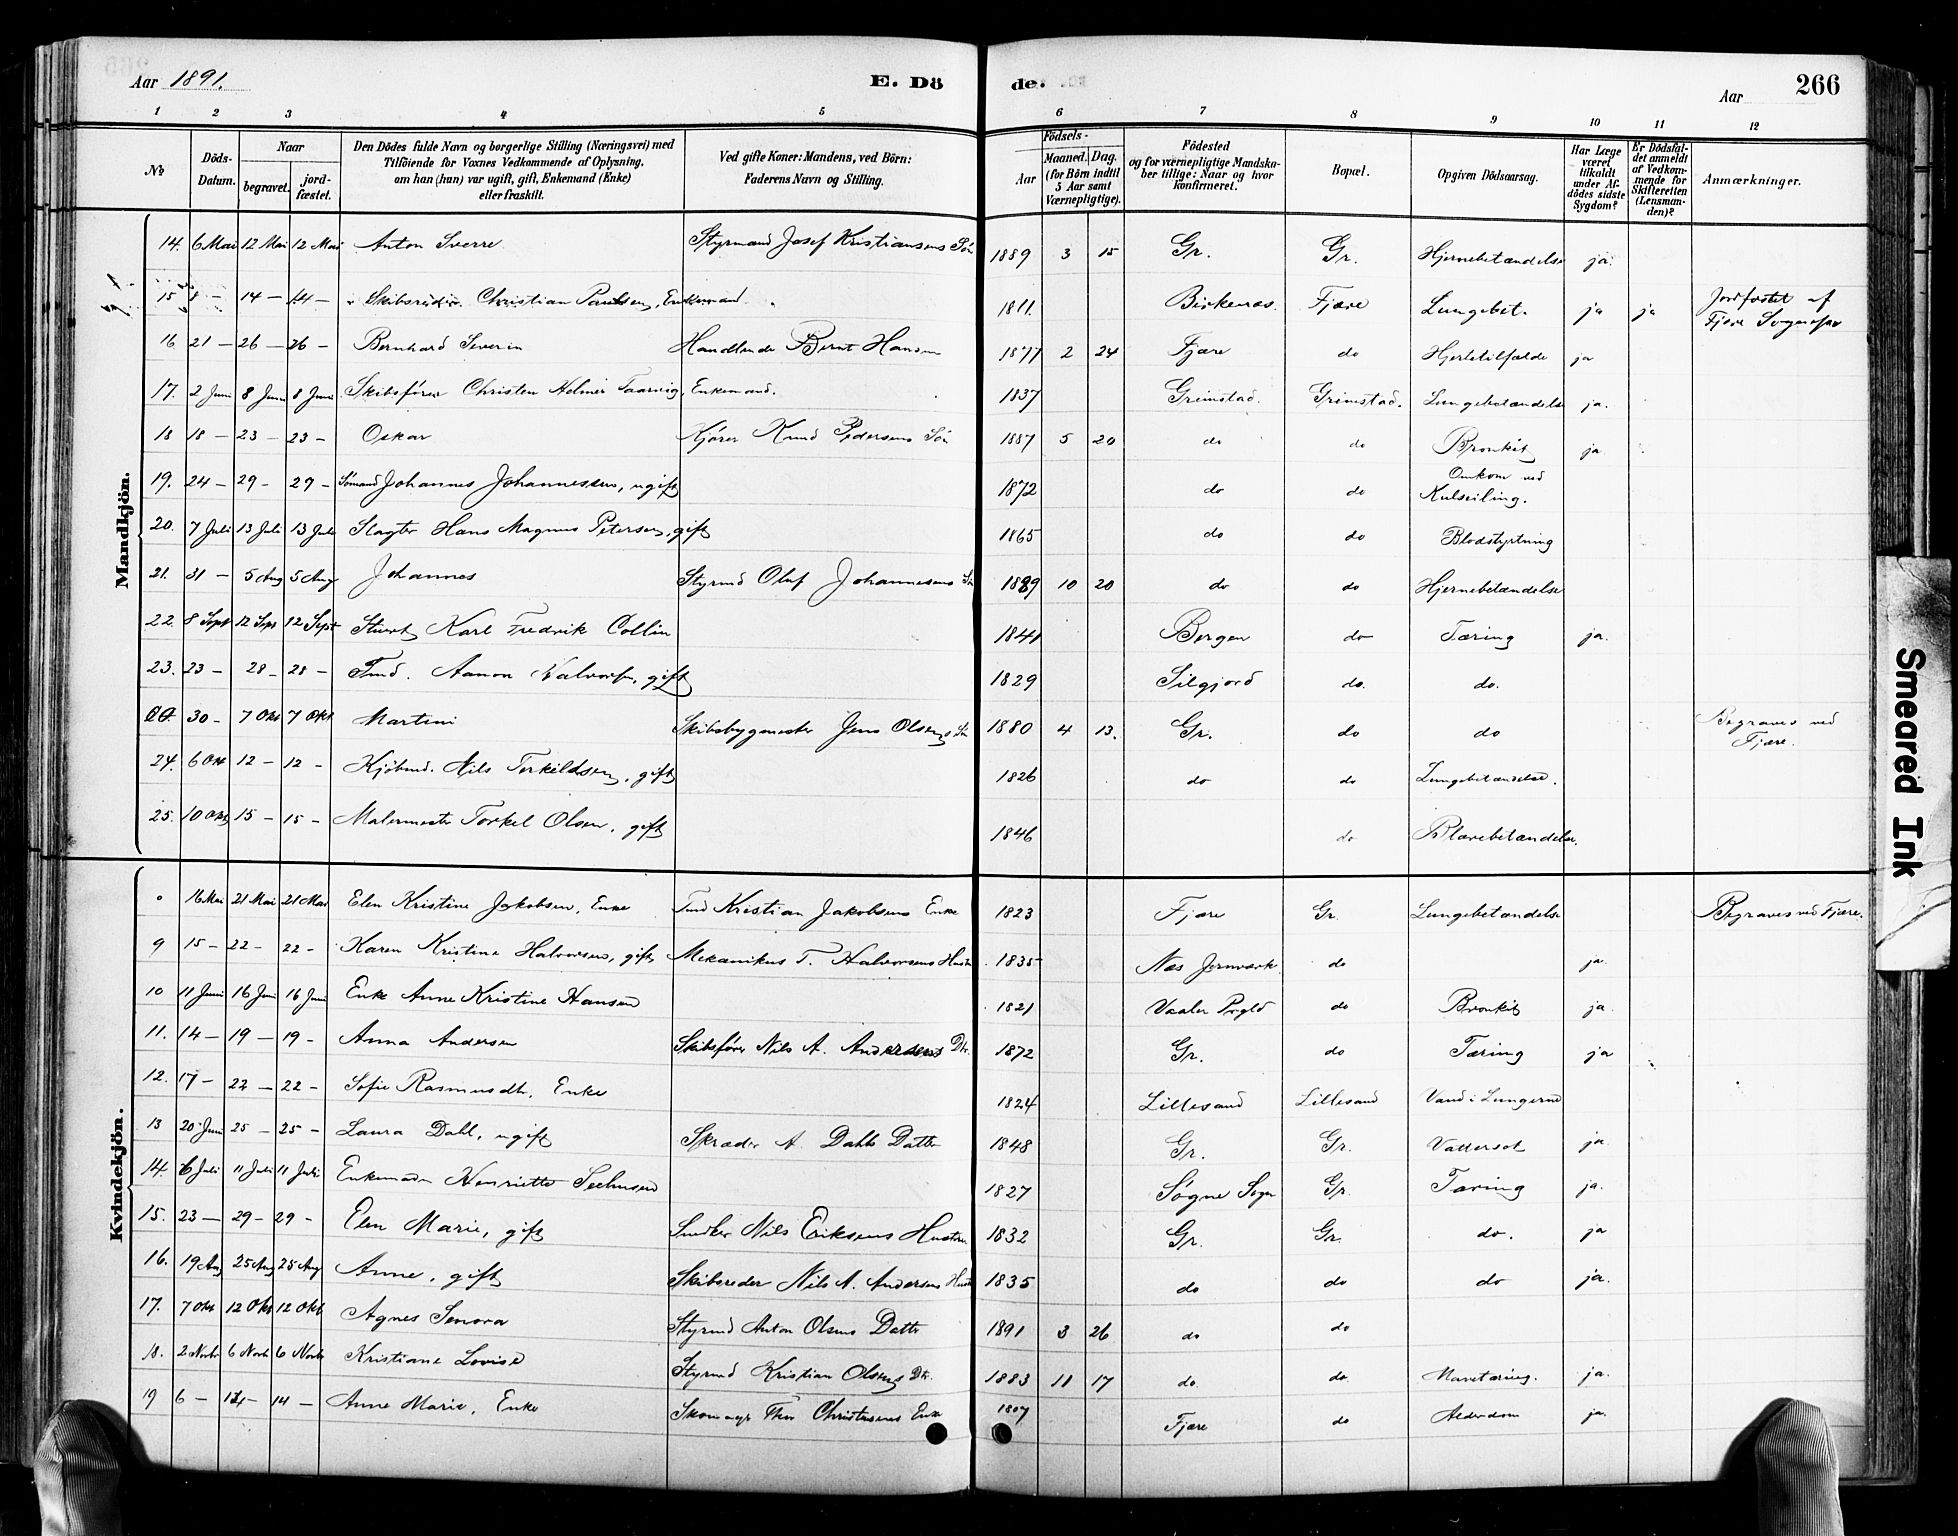 Aar 1891. E. Dö
de.
Aar 266
1 2 3 4 5 6 7 8 9 10 11 12
No
Döds-Datum.
Naar
begravet.
jord-fæstet.
Den Dödes fulde Navn og borgerlige Stilling (Næringsvei) med
Tilföiende for Voxnes Vedkommende af Oplysning,
om han (hun) var ugift, gift, Enkemand (Enke)
eller fraskilt.
Ved gifte Koner: Mandens, ved Börn:
Faderens Navn og Stilling.
Födsels-
Aar
Maaned. Dag.
(for Börn indtil
5 Aar samt
Værnepligtige).
Födested
og for værnepligtige Mandska-
ber tillige: Naar og hvor
konfirmeret.
Bopæl.
Opgiven Dödsaarsag.
Har Læge
været
tilkaldt
under Af-
dödes sidste
Sygdom?
Er Dödsfal-
det anmeldt
af Vedkom-
mende for
Skifteretten
(Lensman-
den)?
Anmærkninger.
Mandkjön.
14. 6 Mai 12 Mai 12 Mai Anton Sverre Styrmand Josef Kristiansens Sön 1889 3 15 Gr. Gr. Hjernebetændelse ja.
15 8 – 14 – 14 – Skibsreder Christian Paulsen, Enkemand 1811. Birkenæs. Fjære Lungebet. ja ja Jordfæstet af
Fjære Sognepr
16 21 – 26 – 26 – Bernhard Severin Handlende Bernt Hansen 1877 2 24 Fjære do Hjertetilfælde ja
17. 2 Juni 8 Juni 8 Juni Skibsfører Christen Helmer Taarvig, Enkemand. 1837 Grimstad. Grimstad. Lungebetændelse ja.
18 18 – 23 – 23 – Oskar Kjører Knud Pedersens Sön 1887 5 20 do do Bronkit ja
19. 24 – 29 – 29 – Sømand Johannes Johannessen, ugift 1872 do do Omkom ved
Kulseiling.
20. 7 Juli 13 Juli 13 Juli Slagter Hans Magnus Petersen, gift 1865 do do Blodstyrtning
21. 31 – 5 Aug 5 Aug Johannes Styrmd Oluf Johannesens Sn 1889 10 20 do do Hjernebetændelse
22. 8 Sept 12 Sept 12 Sept Stuert Karl Fredrik Collin 1841 Bergen do Tæring ja.
23. 23 – 28 – 28 – Tmd. Aanon Halvorsn, gift 1829 Silgjord do. do.
30 – 7 Okt 7 Okt Martini Skibsbygmester Jens Olsens Sn 1880 4 13. Gr. do do Begraves ved
Fjære.
24. 6 Okt 12 – 12 – Kjöbmd. Nils Terkildsen, gift 1826 do do Lungebetændelse.
25. 10 Okt 15 – 15 – Malermester Torkel Olsen, gift 1846 do Blærebetændelse.
Kvindekjön.
16 Mai 21 Mai 21 Mai Elen Kristine Jakobsen, Enke Tmd Kristian Jakobsens Enke 1823 Fjære Gr. Lungebetændelse Begraves ved Fjære.
9 15 – 22 – 22 – Karen Kristine Halvorsen, gift Mekanikus T. Halvorsens Hustru 1835 Næs Jernværk do ja.
10 11 Juni 16 Juni 16 Juni Enke Anne Kristine Hansen 1821 Vaaler Prgld do Bronkit ja.
11. 14 – 19 – 19 – Anna Andersen Skibsfører Nils A. Andersens Dtr. 1872 Gr. do Tæring ja
12. 17 – 22 – 22 – Sofie Rasmusdtr, Enke 1824 Lillesand Lillesand Vand i Lungerne
13 20 Juni 25 – 25 – Laura Dahl, ugift Skræder A. Dahls Datter 1848 Gr. Gr. Vattersot ja.
14. 6 Juli 11 Juli 11 Juli Enkemadm Henriette Seehusen 1827 Søgne Sogn Gr. Tæring ja.
15. 23 – 29 – 29 – Elen Marie, gift Snedker Nils Eriksens Hustru 1832 Gr. Gr. do. ja
16. 19 Aug 25 Aug 25 Aug Anne, gift Skibsreder Nils A. Andersens Hustr 1835 do do do ja.
17. 7 Okt 12 Okt 12 Okt Agnes Senora Styrmd Anton Olsens Datter 1891 3 26 do do
18. 2 Novbr 6 Novb 6 Novb Kristiane Lovise Styrmd Kristian Olsens Dtr. 1883 11 17 do do. Mavetæring. ja.
19 6 – 14 – 14 – Anne Marie, Enke Skomager Thor Christensens Enke 1807 Fjære do Alderdom ja.
Smeared Ink